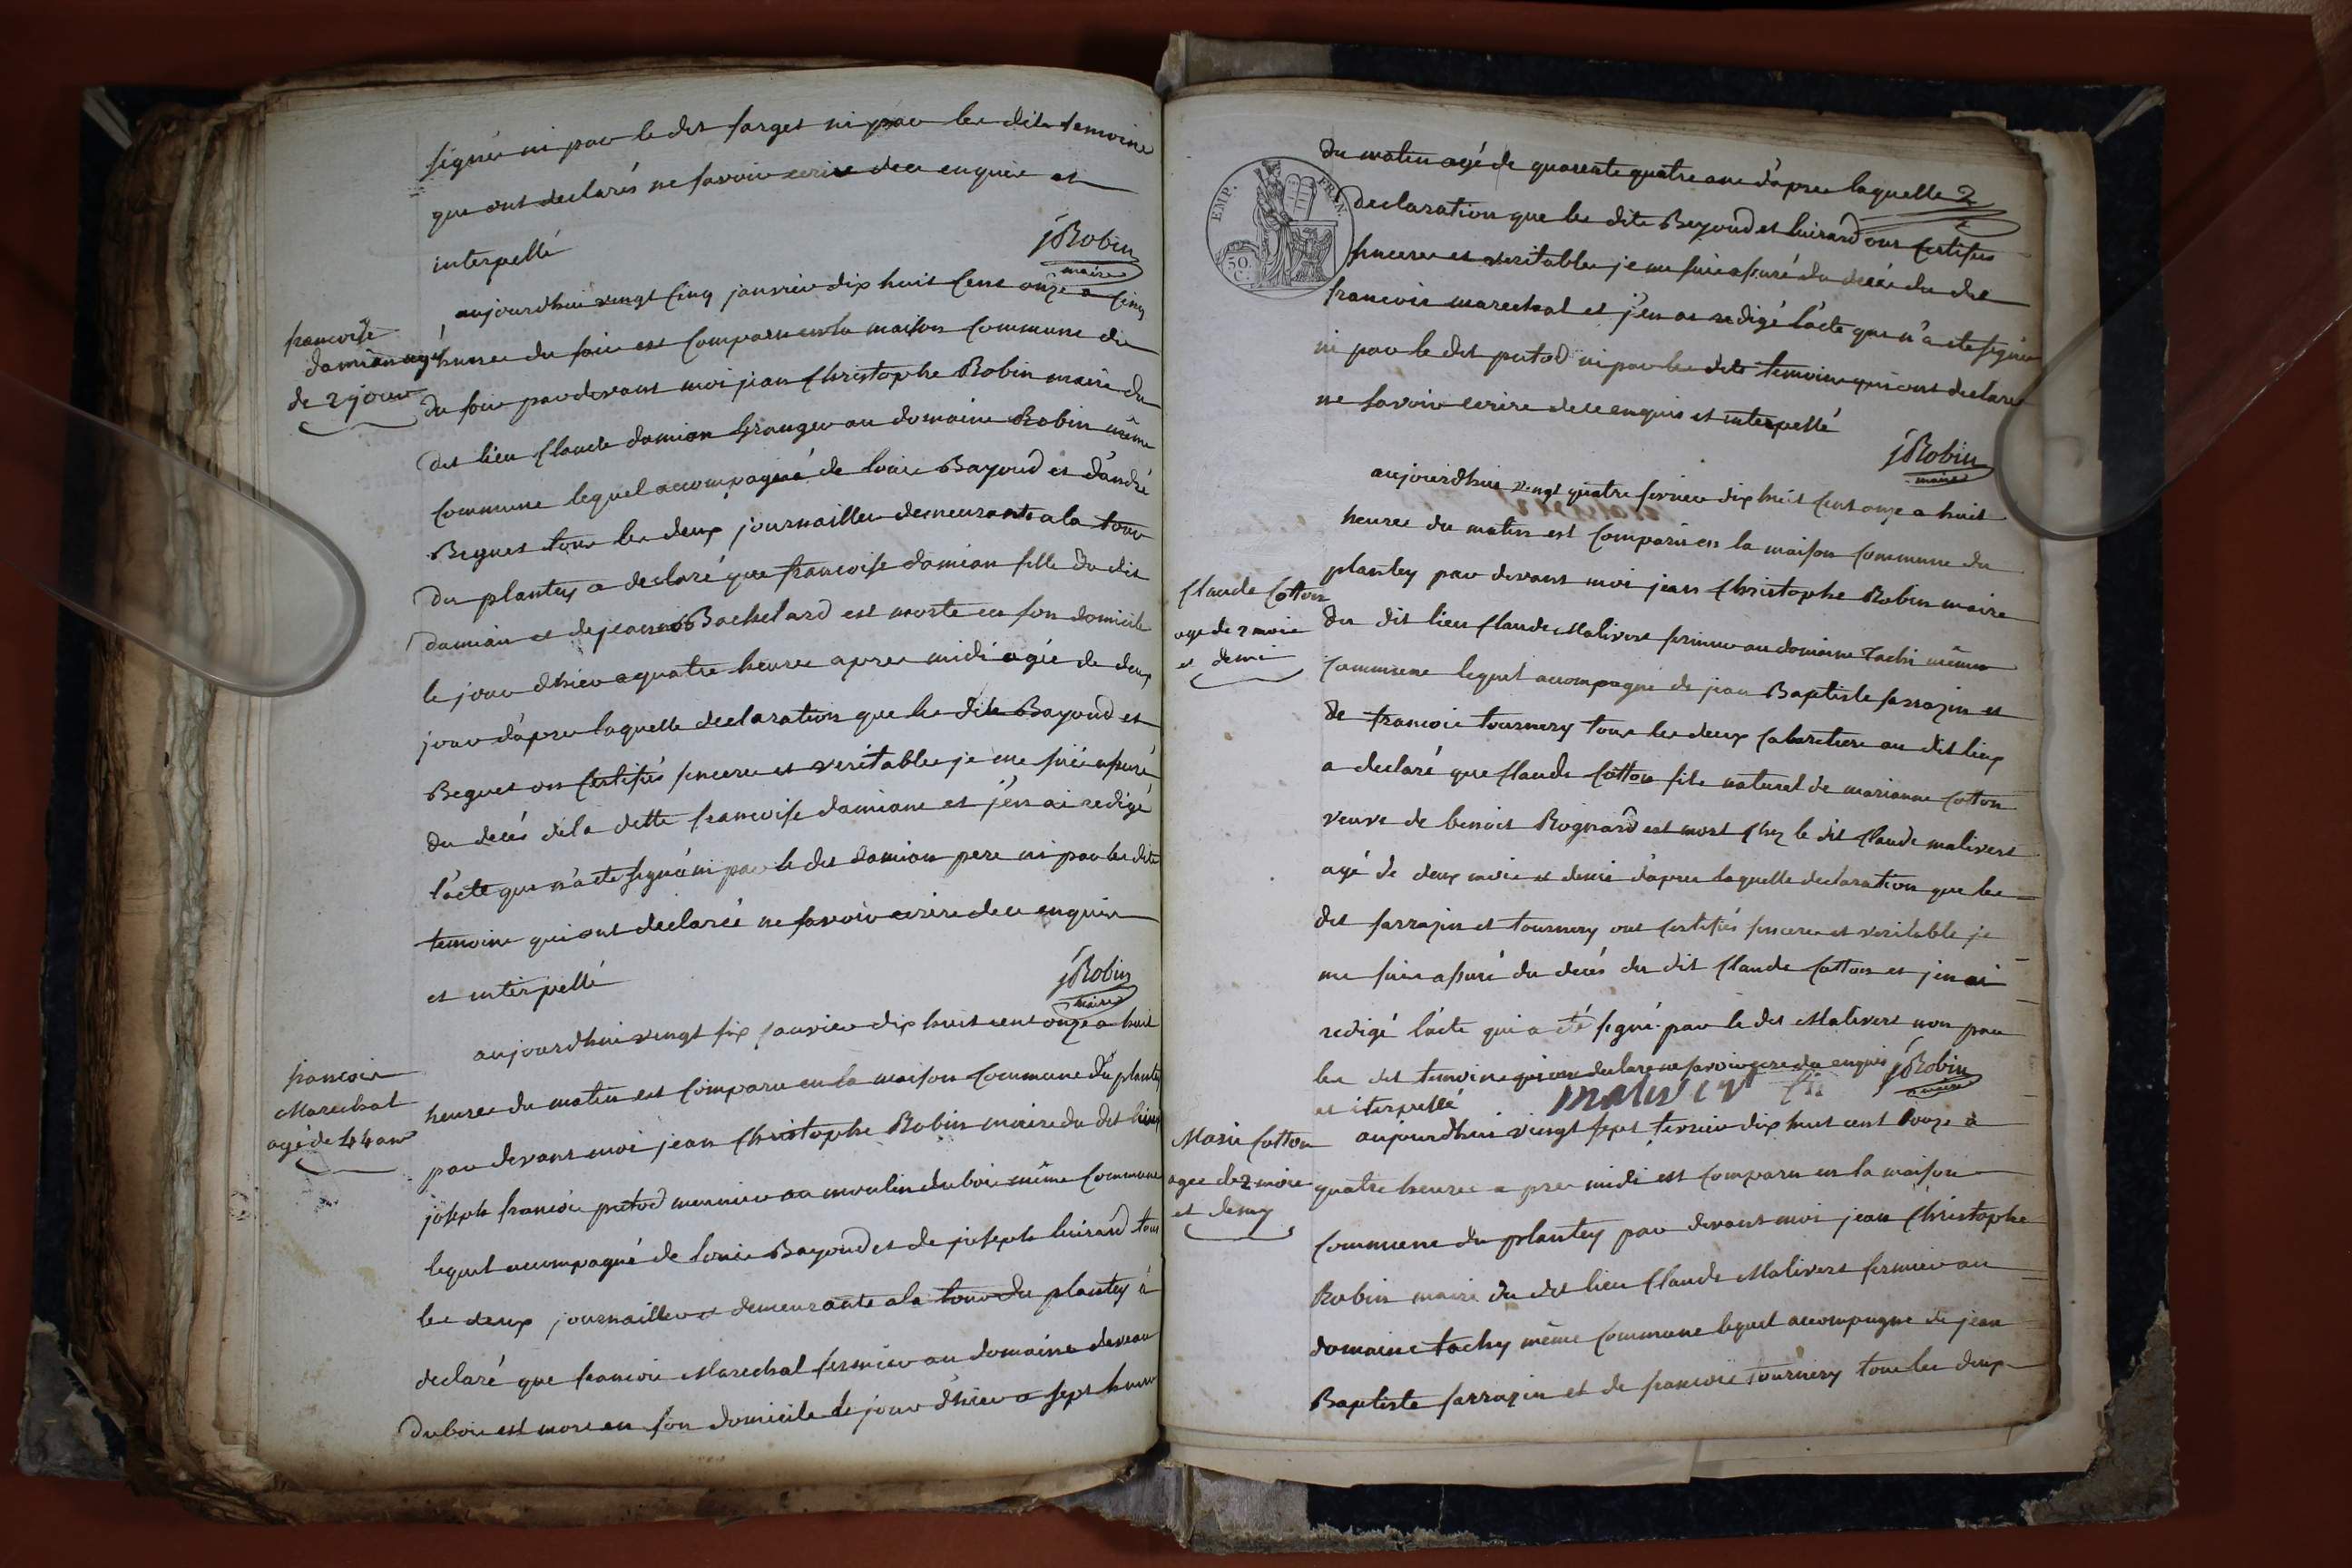 signé ni par le dit farget ni par les dits temoins
que ont declarés ne savoir ecrire de ce enquis et
interpellé
jRobin
maire
francoise
damian agé
de 2 jours
aujourdhui vingt cinq janvier dix huit cent onze a cinq
heures du soir est comparu en la maison commune du
du soir pardevant moi jean christophe Robin maire du
dit lieu claude damian granger au domaine Robin même
commune lequel accompagné de louis Bayoud et d'andré
Beguet tous les deux journaillers demeurants a la tour
du plantey a declaré que francoise damian fille du dit
damian et de jeanne Bachelard est morte en son domicile
le jour d'hier a quatre heures apres midi agée de deux
jours d'apres laquelle declaration que les dits Bayoud et
Beguet on certifiés sincere et veritable je me suis assuré
du decés de la ditte francoise damiane et j'en ai redigé
l'acte que n'a eté signé ni par le dit damian pere ni par les dits
temoins qui ont declarés ne savoir ecrire de ce enquis
et interpellé
jRobin
maire
francois
Marechal
agé de 44 ans
aujourdhui vingt six janvier dix huit cent onze a huit
heures du matin est comparu en la maison commune du plantey
par devant moi jean christophe Robin maire du dit lieu
joseph francois putod meunier au moulin dubois même commune
lequel accompagné de louis Bayoud et de joseph luirard tous
les deux journailler demeurants a la tour du plantey à
declaré que francois Marechal fermier au domaine deveau
dubois est mort en son domicile le jour d'hier a sept heures
EMP. FRAN.
50.
C.
du matin agé de quarente quatre ans d'apres laquelle 2
declaration que les dits Bayoud et luirard ont certifiés
sincere et veritable je me suis assuré du decés du dit
francois marechal et j'en ai redigé l'acte que n'a eté signé
ni par le dit putod ni par les dits temoins qui ont declaré
ne savoir ecrire de ce enquis et interpellé
jRobin
maire
claude Cotton
agé de 2 mois
et demi
aujourdhui vingt quatre fevrier dix huit cent onze a huit
heures du matin est comparu en la maison commune du
plantey par devant moi jean christophe Robin maire
du dit lieu claude Malivert fermier au domaine Tachi même
commune lequel accompagné de jean Baptiste sarrazin et
de francois tournery tous les deux cabaretiers au dit lieu
a declaré que claude cotton fils naturel de marianne cotton
veuve de benoit Rognard est mort chez le dit claude malivert
agé de deux mois et demi d'apres laquelle declaration que les
dit sarrazin et tournery ont certifiés sincere et veritable je
me suis assuré du decés du dit claude cotton et j'en ai
redigé l'acte qui a été signé par le dit Malivert non par
les dit temoins qui ont declaré ne savoir ecrire de ce enquis
jRobin
maire
et iterpellé
malivert
Marie cotton
agée de 2 mois
et demy
aujourdhui vingt sept fevrier dix huit cent onze à
quatre heures apres midi est comparu en la maison
commune du plantey par devant moi jean christophe
Robin maire du dit lieu claude Malivert fermier au
domaine tachy même commune lequel accompagné de jean
Baptiste sarrazin et de francois tournery tous les deux